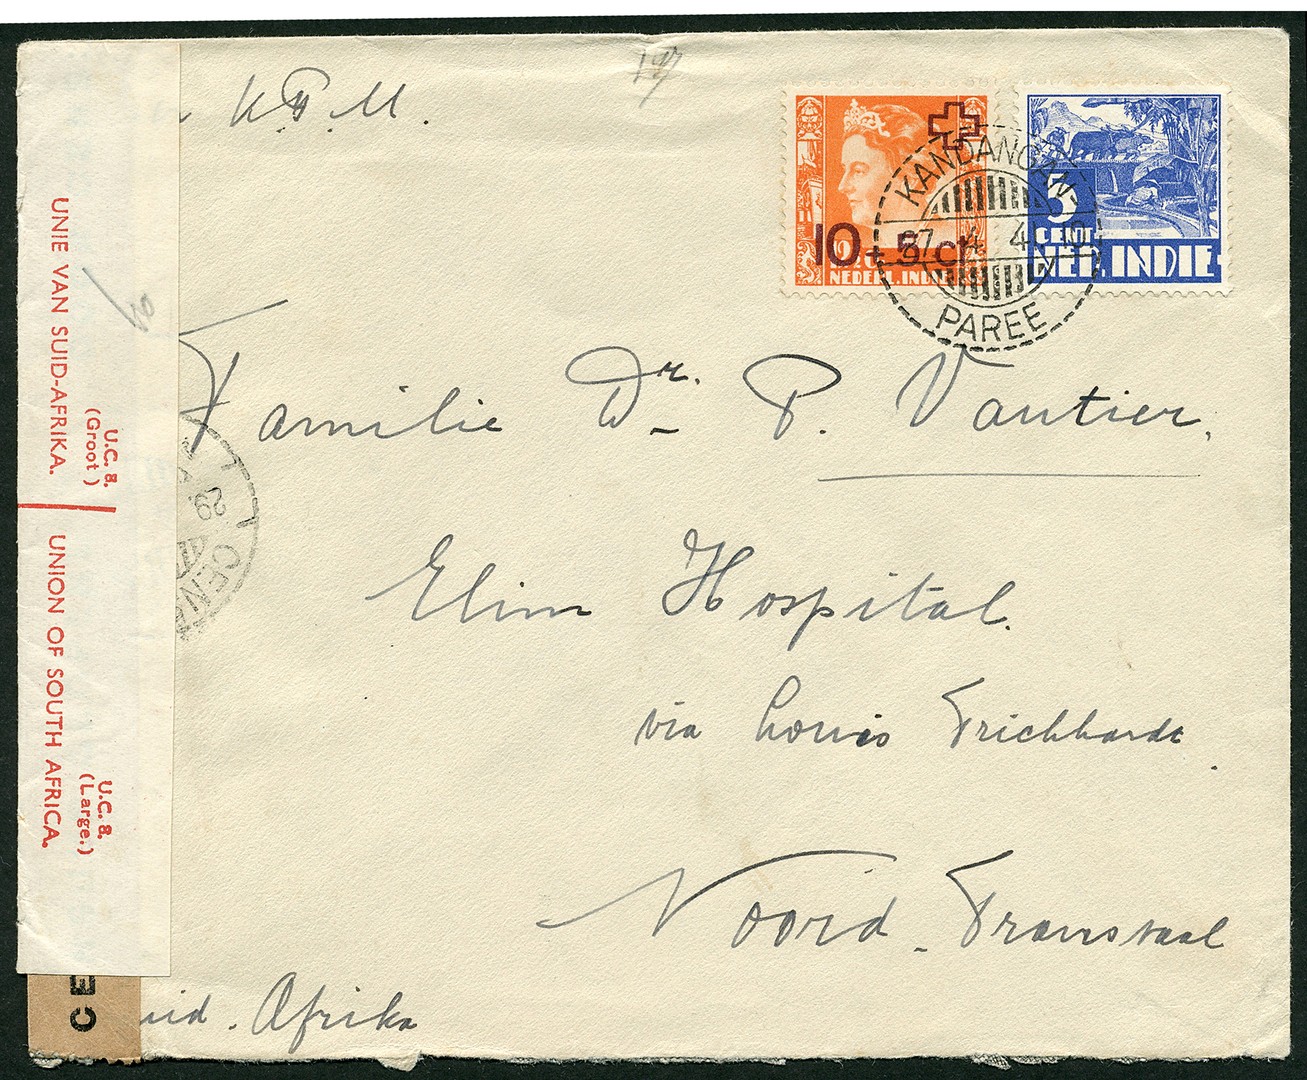 K.P.M.
10 + 5 ct
NEDERL. INDIE
5
CENT
NED. INDIE
KANDANGAN
27 4 4
PAREE
Familie Dr. P. Vautier.
Elim Hospital.
via Louis Trichhardt
Noord - Transvaal
uid. Afrika
UNIE VAN SUID-AFRIKA.
U.C. 8.
(Groot)
UNION OF SOUTH AFRICA.
U.C. 8.
(Large.)
29
CEN
CE